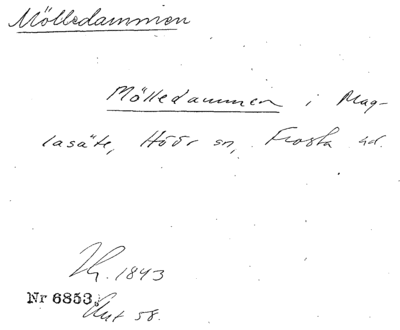 Mölledammen
Mölledammen i Mag-
lasäte, Höör sn, Frosta hd.
1843
Nr 6853.
Ant 58.